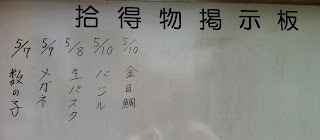 拾得物掲示板
5/10 金目鯛
5/10 バジル
5/8 生パスタ
5/7 メガネ
5/7 数の子